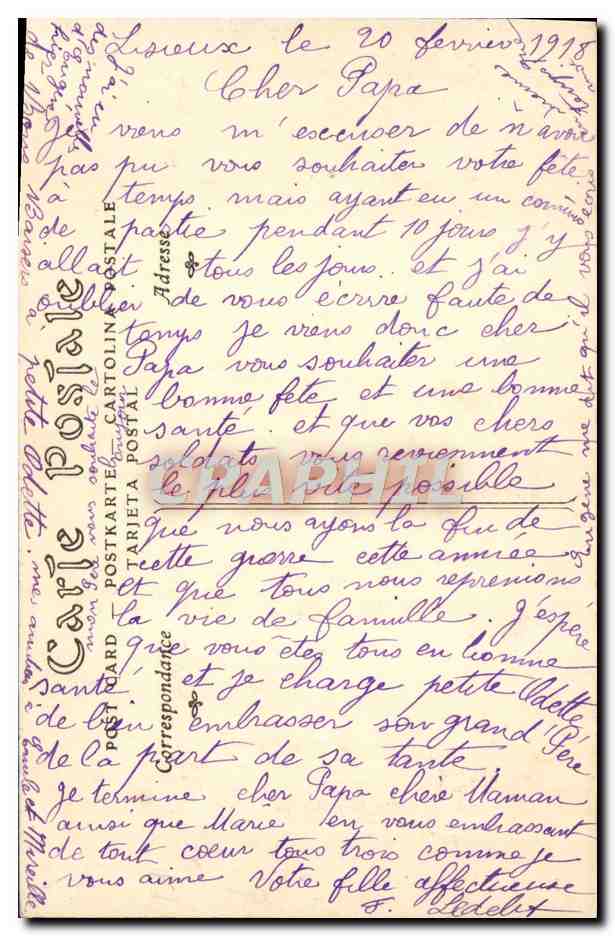 Lisieux le 20 fevrier 1918
Cher Papa
Je viens m'escuser de n'avoir
pas pu vous souhaiter votre fête
à temps mais ayant eu un
de partie pendant 10 jours j'y
allait tous les jours. et j'ai
oublier de vous écrire faute de
temps je viens donc cher
Papa vous souhaiter une
bonne fête et une bonne
santé. et que vos chers
soldats vous reviennent
le plus vite possible
que nous ayons la fin de
cette grerre cette année
et que tous nous reprenions
la vie de famille. J'espére
que vous êtes tous en bonne
santé et je charge petite Odette
de bien embrasser son grand Père
de la part de sa tante.
Je termine cher Papa chère Maman
ainsi que Marie en vous embrassant
de tout cœur tous trois comme je
vous aime Votre fille affectueuse
F.
J'ai eu
des nouvelles
hier
de Bons Baisers à petite Odette. mes
et Mireille
Eugène me dit qu'il vous écris
Carte Postale
POST CARD — POSTKARTE — CARTOLINA POSTALE
TARJETA POSTAL
Correspondance
Adresse
CRAPHIL